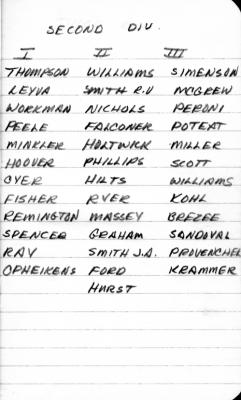 SECOND DIV.
I II III
THOMPSON WILLIAMS SIMENSON
LEYVA SMITH R.V MCGREW
WORKMAN NICHOLS PERONI
PEELE FALCONER POTEAT
MINKLER HOLTWICK MILLER
HOOVER PHILLIPS SCOTT
OYER HILTS WILLIAMS
FISHER RYER KOHL
REMINGTON MASSEY BREZEE
SPENCER GRAHAM SANDOVAL
RAY SMITH J.A. PROVENCHER
OPHEIKENS FORD KRAMMER
HURST